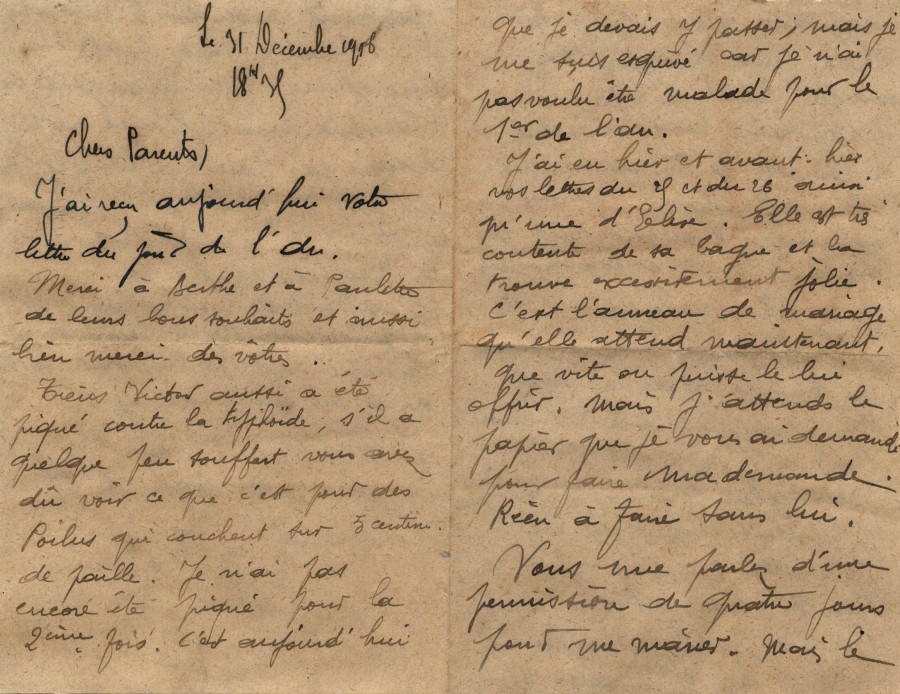 Le 31 Décembre 1916
18H
Chers Parents,
J'ai reçu aujourd'hui votre
lettre du jour de l'an.
Merci à Berthe et à Paulette
de leurs bons souhaits et aussi
bien merci des vôtres.
Tiens Victor aussi a été
piqué contre la typhoïde, s'il a
quelque peu souffert vous avez
dû voir ce que c'est pour des
Poilus qui couchent sur 5 centim.
de paille. Je n'ai pas
encore été piqué pour la
2ème fois. C'est aujourd'hui
que je devais y passer, mais je
me suis esquivé car je n'ai
pas voulu être malade pour le
1er de l'an.
J'ai eu hier et avant-hier
vos lettres du 25 et du 26 ainsi
qu'une d'Elise. Elle est très
contente de sa bague et la
trouve excessitement jolie.
C'est l'anneau de mariage
qu'elle attend maintenant,
que vite on puisse le lui
offrir. Mais j'attends le
papier que je vous ai demandé
pour faire ma demande.
Rien à faire sans lui.
Vous me parlez d'une
permission de quatre jours
pour me marier. Mais le